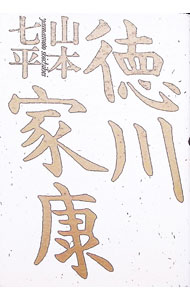 徳川
家康
山本
yamamoto shichihei
七平